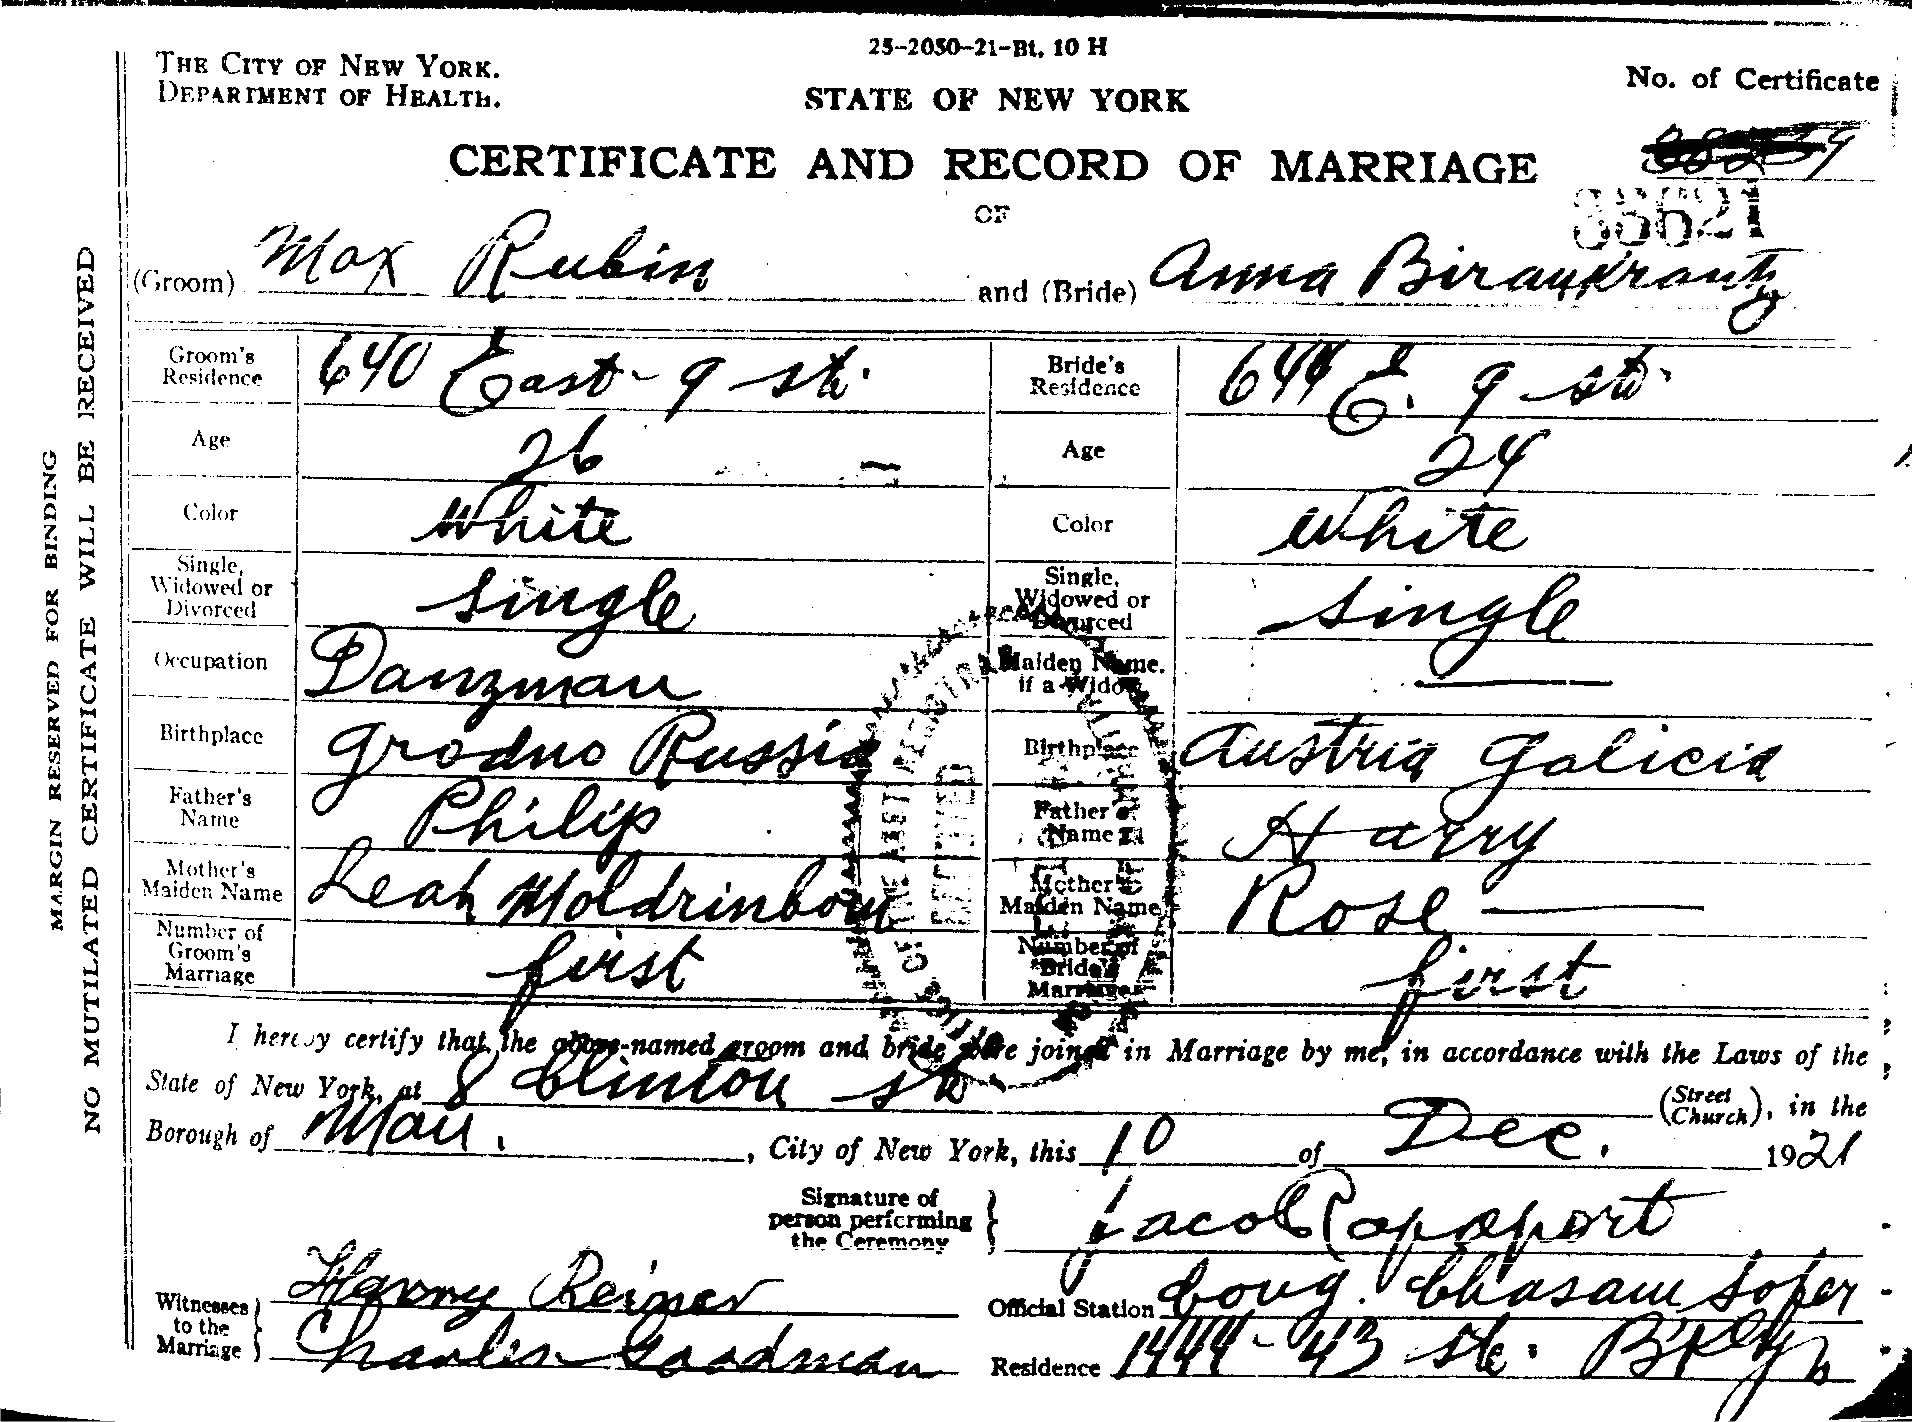 25-2050-21-Bt. 10 H
THE CITY OF NEW YORK.
DEPARTMENT OF HEALTH.
STATE OF NEW YORK
No. of Certificate
CERTIFICATE AND RECORD OF MARRIAGE
OF
(Groom) Max Rubin and (Bride) Anna
Groom's Residence 640 East 9 St. Bride's Residence 644 E. 9 St.
Age 26 Age 24
Color White Color White
Single, Widowed or Divorced Single Single, Widowed or Divorced Single
Occupation Danzman Maiden Name, if a Widow —
Birthplace Grodno Russia Birthplace Austria Galicia
Father's Name Philip Father's Name Harry
Mother's Maiden Name Leah Mother's Maiden Name Rose —
Number of Groom's Marriage first Number of Bride's Marriage first
I hereby certify that the above-named groom and bride were joined in Marriage by me, in accordance with the Laws of the
State of New York, at 8 Clinton St (Street Church), in the
Borough of Man. , City of New York, this 10 of Dec. 1921
Signature of person performing the Ceremony } Jacob Rapoport
Witnesses to the Marriage } Harry Reiner
Charles Goodman
Official Station Cong. Chasam Sofer
Residence 1444-43 St. B'klyn
MARGIN RESERVED FOR BINDING
NO MUTILATED CERTIFICATE WILL BE RECEIVED